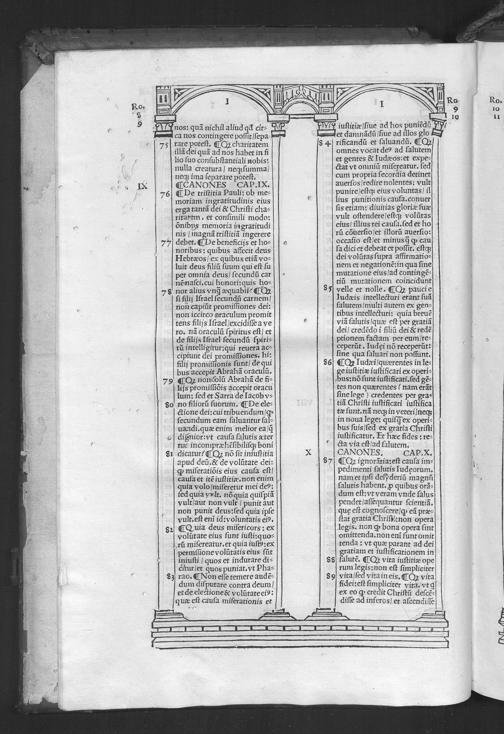 Ro.
8
9
I
nos: quā nichil aliud q̄ cir-
ca nos contingere possit sepa
rare potest. ¶Qꝫ charitatem
75
illā dei quā ad nos habet in fi
lio suo consubstantiali nobis:
nulla creatura / neqꝫ summa /
neqꝫ ima separare potest.
IX
¶CANONES CAP.IX.
76
¶De tristitia Pauli: ob me-
moriam ingratitudinis eius
erga tantā dei & Christi cha-
ritatem. et consimili modo:
ōnibus memoria ingratitudi
nis / magnā tristitiā ingerere
debet.
77
¶De beneficijs et ho
noribus: quibus affecit deus
Hebræos / ex quibus etiā vo-
luit deus filiū suum qui est su
per omnia deus / secundū car
nē nasci, cui honori: quis ho-
nor alius vnq̄ æquabit?
78
¶Qꝫ
si filij Israel secundū carnem /
non capiūt promissiones dei:
non iccirco oraculum promit
tens filijs Israel / excidisse a ve
ro. nā oraculū spiritus est / et
de filijs Israel secundū spiri-
tū intelligitur; qui reuera ac-
cipiunt dei promissiones. hi:
filij promissionis sunt / de qui
bus accepit Abrahā oraculū.
79
¶Qꝫ nonsolū Abrahā de fi-
lijs promissiōis accepit oracu
lum; sed et Sarra de Iacob v-
no filiorū suorum.
80
¶De ele-
ctione dei: cui tribuendum / ꝙ
secundum eam saluantur sal-
uandi. quæ enim melior ea / q̄
dignior: vt causa salutis æter
næ incomprehēsibilisqꝫ boni
dicatur?
81
¶Qꝫ nō sit iniustitia
apud deū. & de volūtate dei:
ꝙ miseratiōis eius causa est /
causa et itē iustitiæ. non enim
quia volo / miseretur mei deꝰ:
sed quia vult. nō quia quispiā
vult / aut non vult / punit aut
non punit deus; sed quia ipse
vult. est eni id: voluntatis eiꝰ.
82
¶Quia deus misericors: ex
volūtate eius sunt iustiqꝫ quo-
rū misereatur. et quia iustꝰ: ex
permissione volūtatis eius sūt
iniusti / quos et indurare di-
citur et quos puniat. vt Pha-
rao.
83
¶Non esse temere audē-
dum disputare contra deum /
et de electione & volūtate eiꝰ:
quæ est causa miserationis et
I
Ro.
9
10
iustitiæ / siue ad hos puniēdū
et damnādū / siue ad illos glo
84
rificandū et saluandū. ¶Qꝫ
omnes vocat deꝰ ad salutem
et gentes & Iudæos: et expe-
ctat vt omniū misereatur. sed
cum propria secordia detinet
auersos / redire nolentes; vult
punire / estqꝫ eius voluntas / il
lius punitionis causa. conuer
sis etiam; diuitias gloriæ suæ
vult ostendere / estqꝫ volūtas
eius / illius rei causa. sed et ho
rū cōuersio / et illorū auersio:
occasio est / et minus q̄ q cau
sa dici et debeat et possit. estqꝫ
dei volūtas supra affirmatio-
nem et negationē: in qua sine
mutatione eius / ad contingē-
tiū mutationem coincidunt
velle et nolle.
85
¶Qꝫ pauci e
Iudæis intellecturi erant suā
salutem / multi autem ex gen-
tibus intellecturi: quia breuē
viā salutis / quæ est per gratiā
dei / credēdo ī filiū dei & redē
ptionem factam per eum / re-
ceperūt. Iudæi nō receperūt
sine qua saluari non possunt.
86
¶Qꝫ Iudæi / quærentes in le-
ge iustitiæ iustificari ex operi-
bus; nō sunt iustificati. sed gē-
tes non quærentes / nam erāt
sine lege / credentes per gra-
tiā Christi iustificari iustifica
tæ sunt. nā neqꝫ in veteri / neqꝫ
in noua lege: quisq̄ ex operi-
bus suis / sed ex gratia Christi
iustificatur. Et hæc fides: re-
cta via est / ad salutem.
X
CANONES. CAP.X.
87
¶Qꝫ ignorātia: est causa im-
pedimēti salutis Iudeorum.
nam et ipsi desyderiū magnū
salutis habent. ꝓ quibus orā-
dum est: vt veram vnde salus
pendet / assequantur scientiā.
que est cognoscere / ꝙ eā præ-
stat gratia Christi; non opera
legis. non ꝙ bona opera sint
omittenda. non enī sunt omit
tenda: vt quæ parant ad dei
gratiam et iustificationem in
salutē.
88
¶Qꝫ vita iustitiæ ope
rum legis: non est simpliciter
vita / sed vita in eis.
89
¶Qꝫ vita
fidei: est simpliciter vita. vt qꝫ
ex eo ꝙ credit Christū descē-
disse ad inferos / et ascendisse
Ro.
10
11